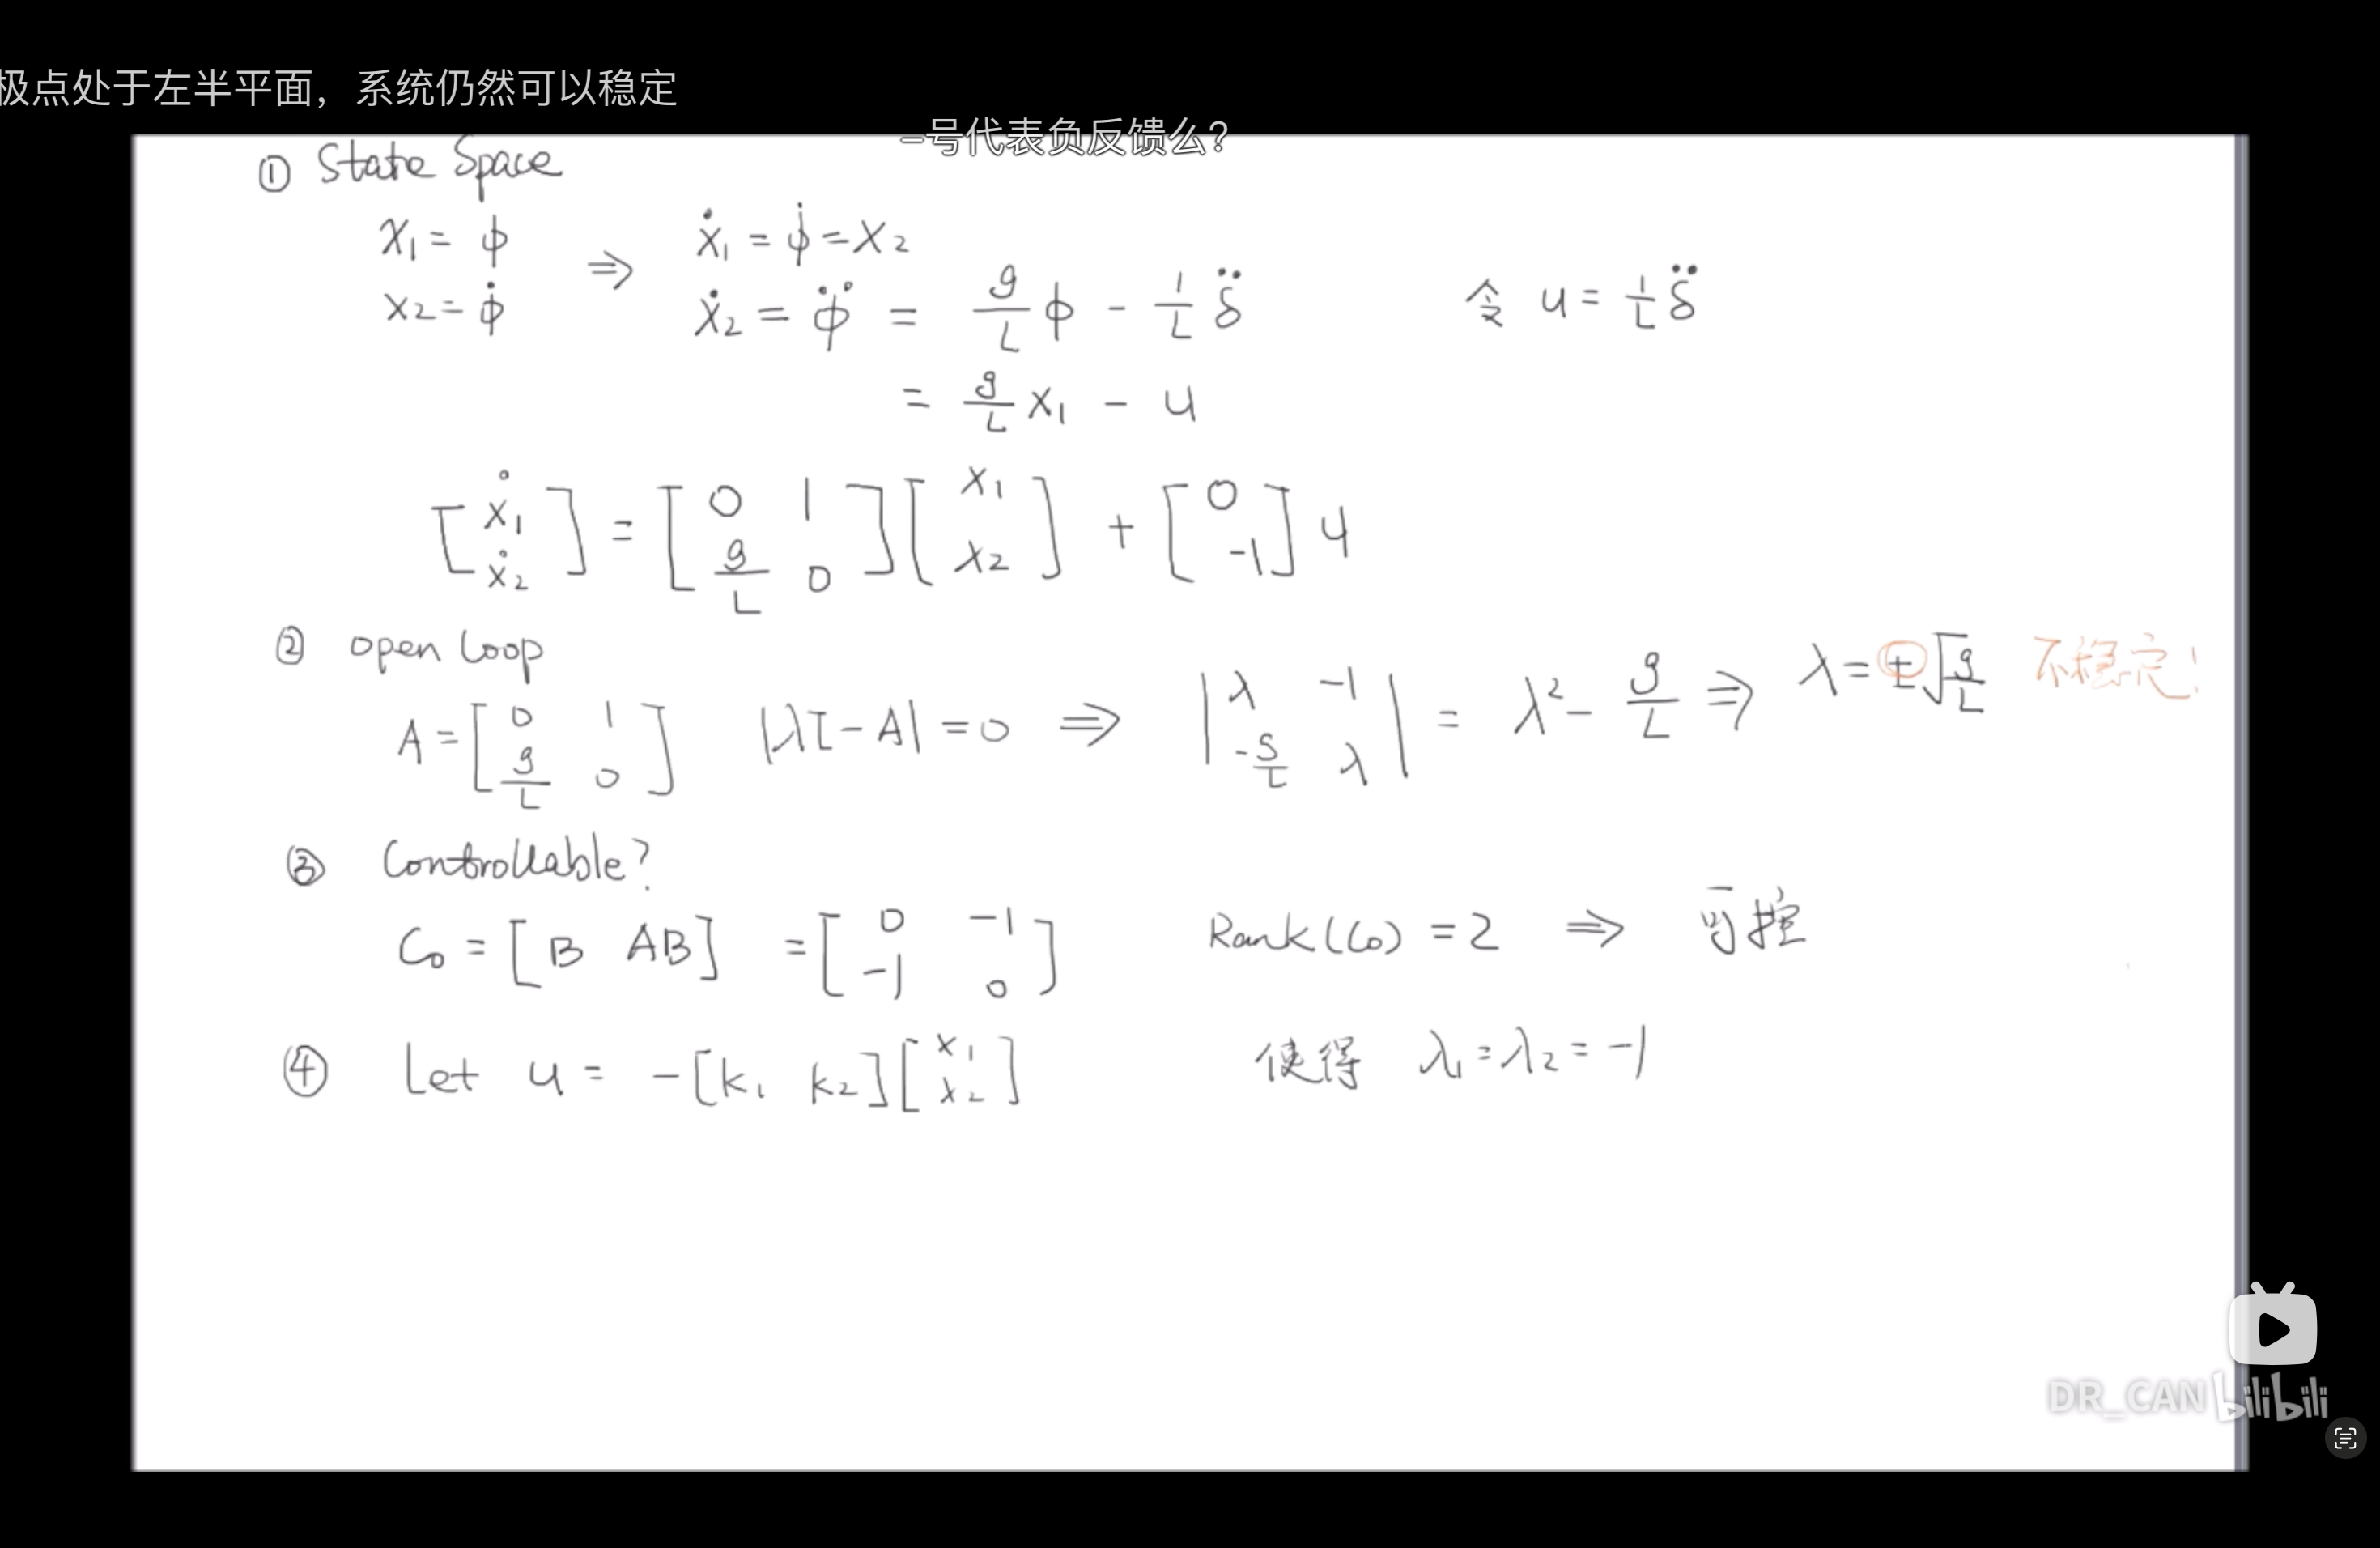 极点处于左半平面，系统仍然可以稳定
-号代表负反馈么？
① State Space
x₁ = ϕ ⇒ ẋ₁ = ϕ̇ = x₂
x₂ = ϕ̇ ẋ₂ = ϕ̈ = g/L ϕ - 1/L δ̈ 令 u = 1/L δ̈
= g/L x₁ - u
[ẋ₁ ẋ₂] = [0 1; g/L 0] [x₁ x₂] + [0 -1] u
② open loop
A = [0 1; g/L 0] |λI - A| = 0 ⇒ |λ -1; -g/L λ| = λ² - g/L ⇒ λ = ±√(g/L) 不稳定！
③ Controllable?
Co = [B AB] = [0 -1; -1 0] Rank(Co) = 2 ⇒ 可控
④ Let u = -[k₁ k₂] [x₁ x₂] 使得 λ₁ = λ₂ = -1
DR_CAN bilibili